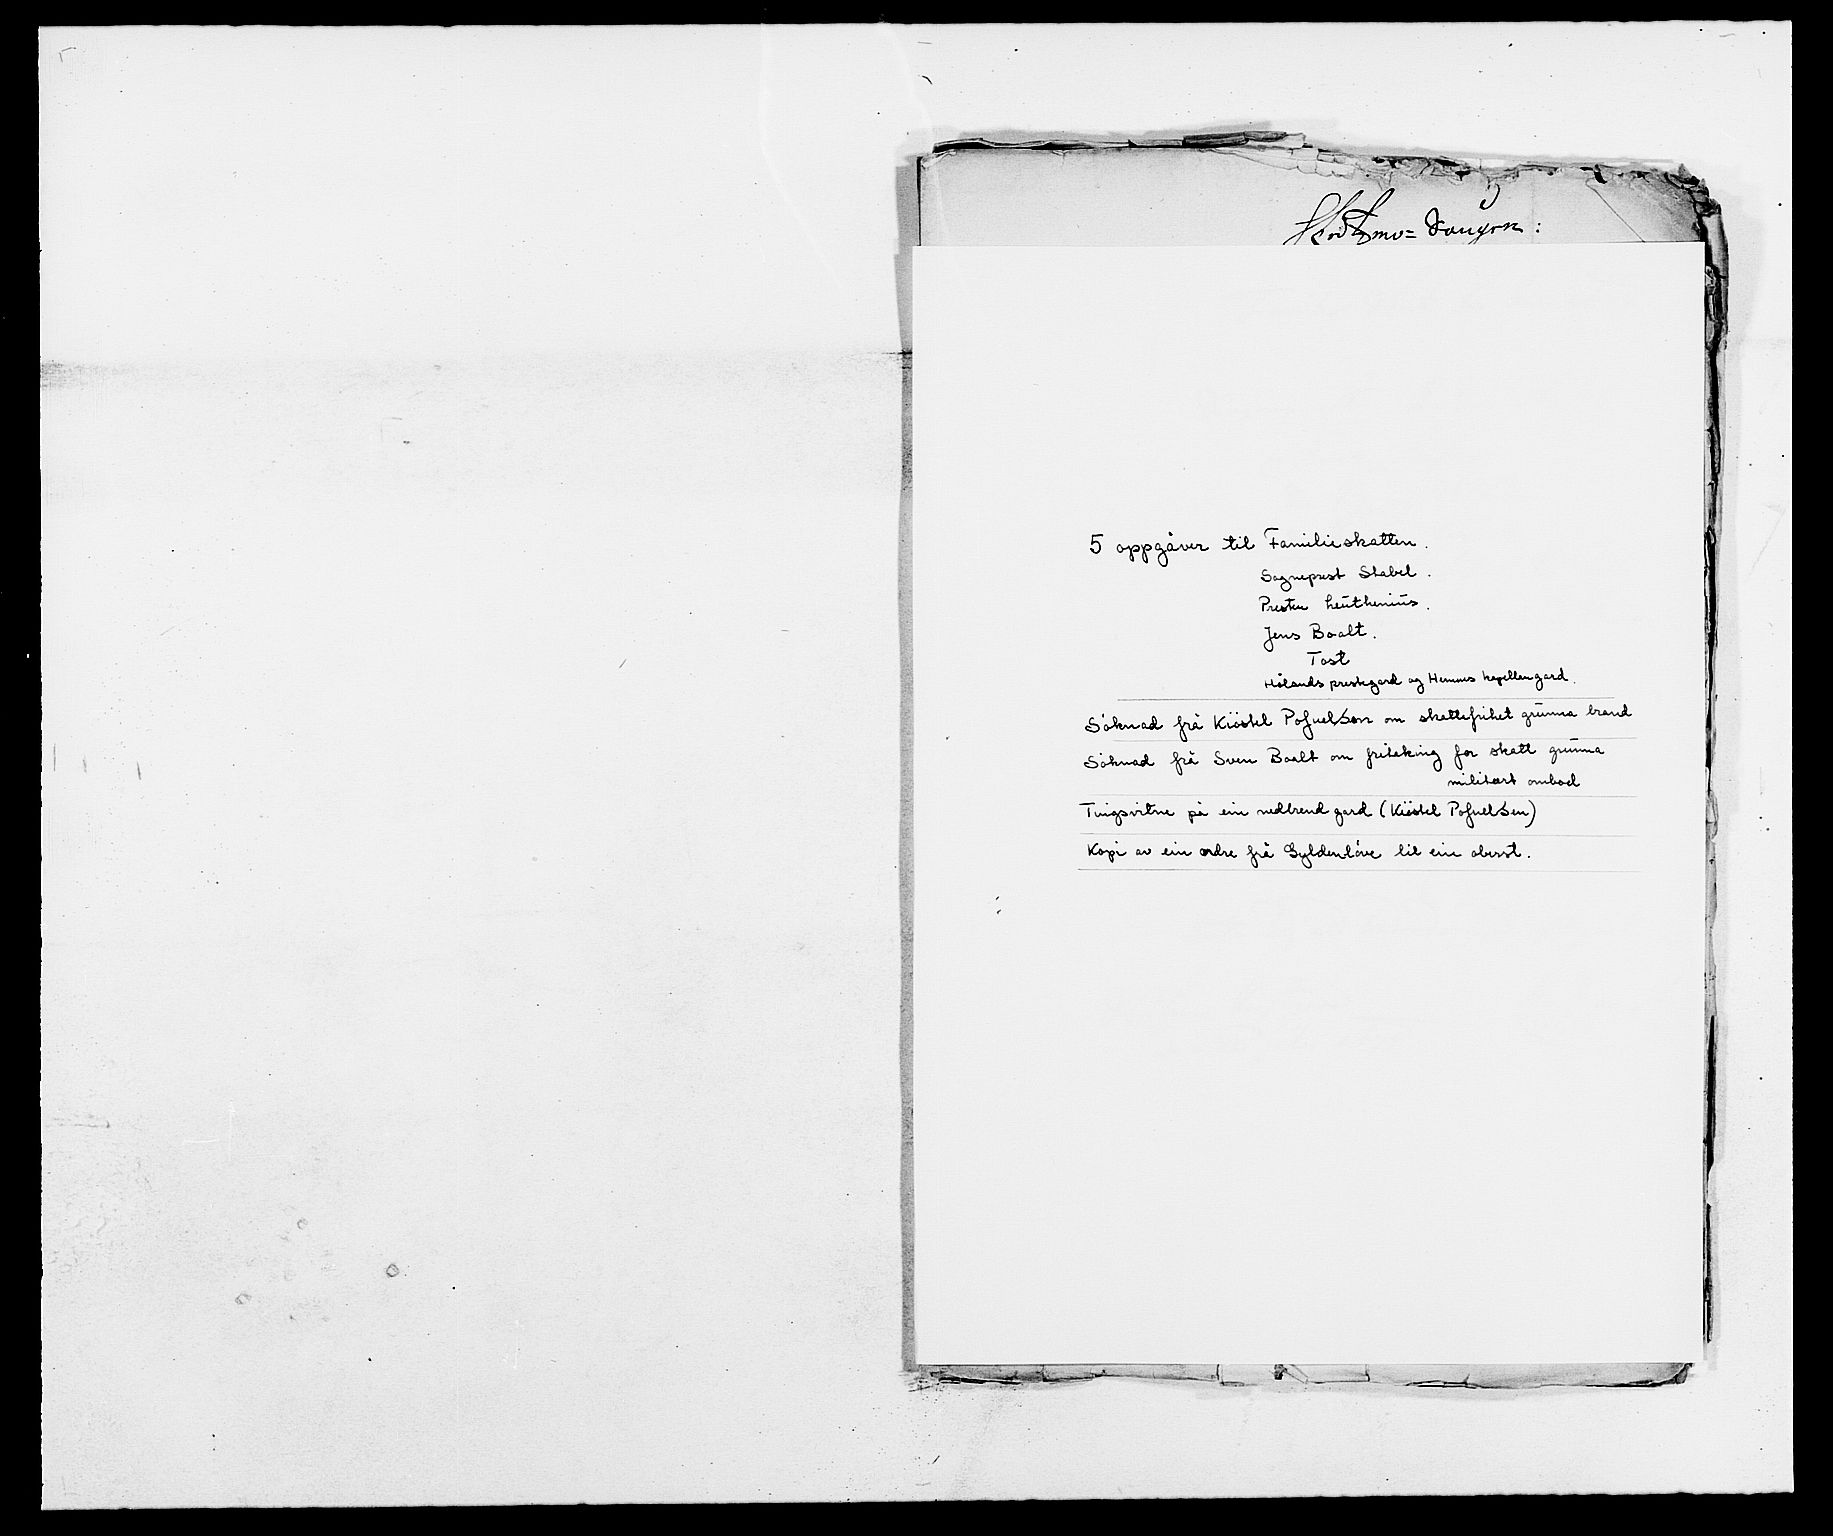 5 oppgåver til Familieskatten.
Sogneprest Stabel.
Presten Leuthenius.
Jens Baalt.
Tost
Hölands prestegard og Hemnes kapellengard.
Söknad frå Kiöstel Pofuelsen om skattefrihet grunna brand
Söknad frå Sven Baalt om fritaking for skatt grunna
militært ombod
Tingsvitne på ein nedbrend gard (Kiöstel Pofuelsen)
Kopi av ein ordre frå Gyldenlöve til ein oberst.